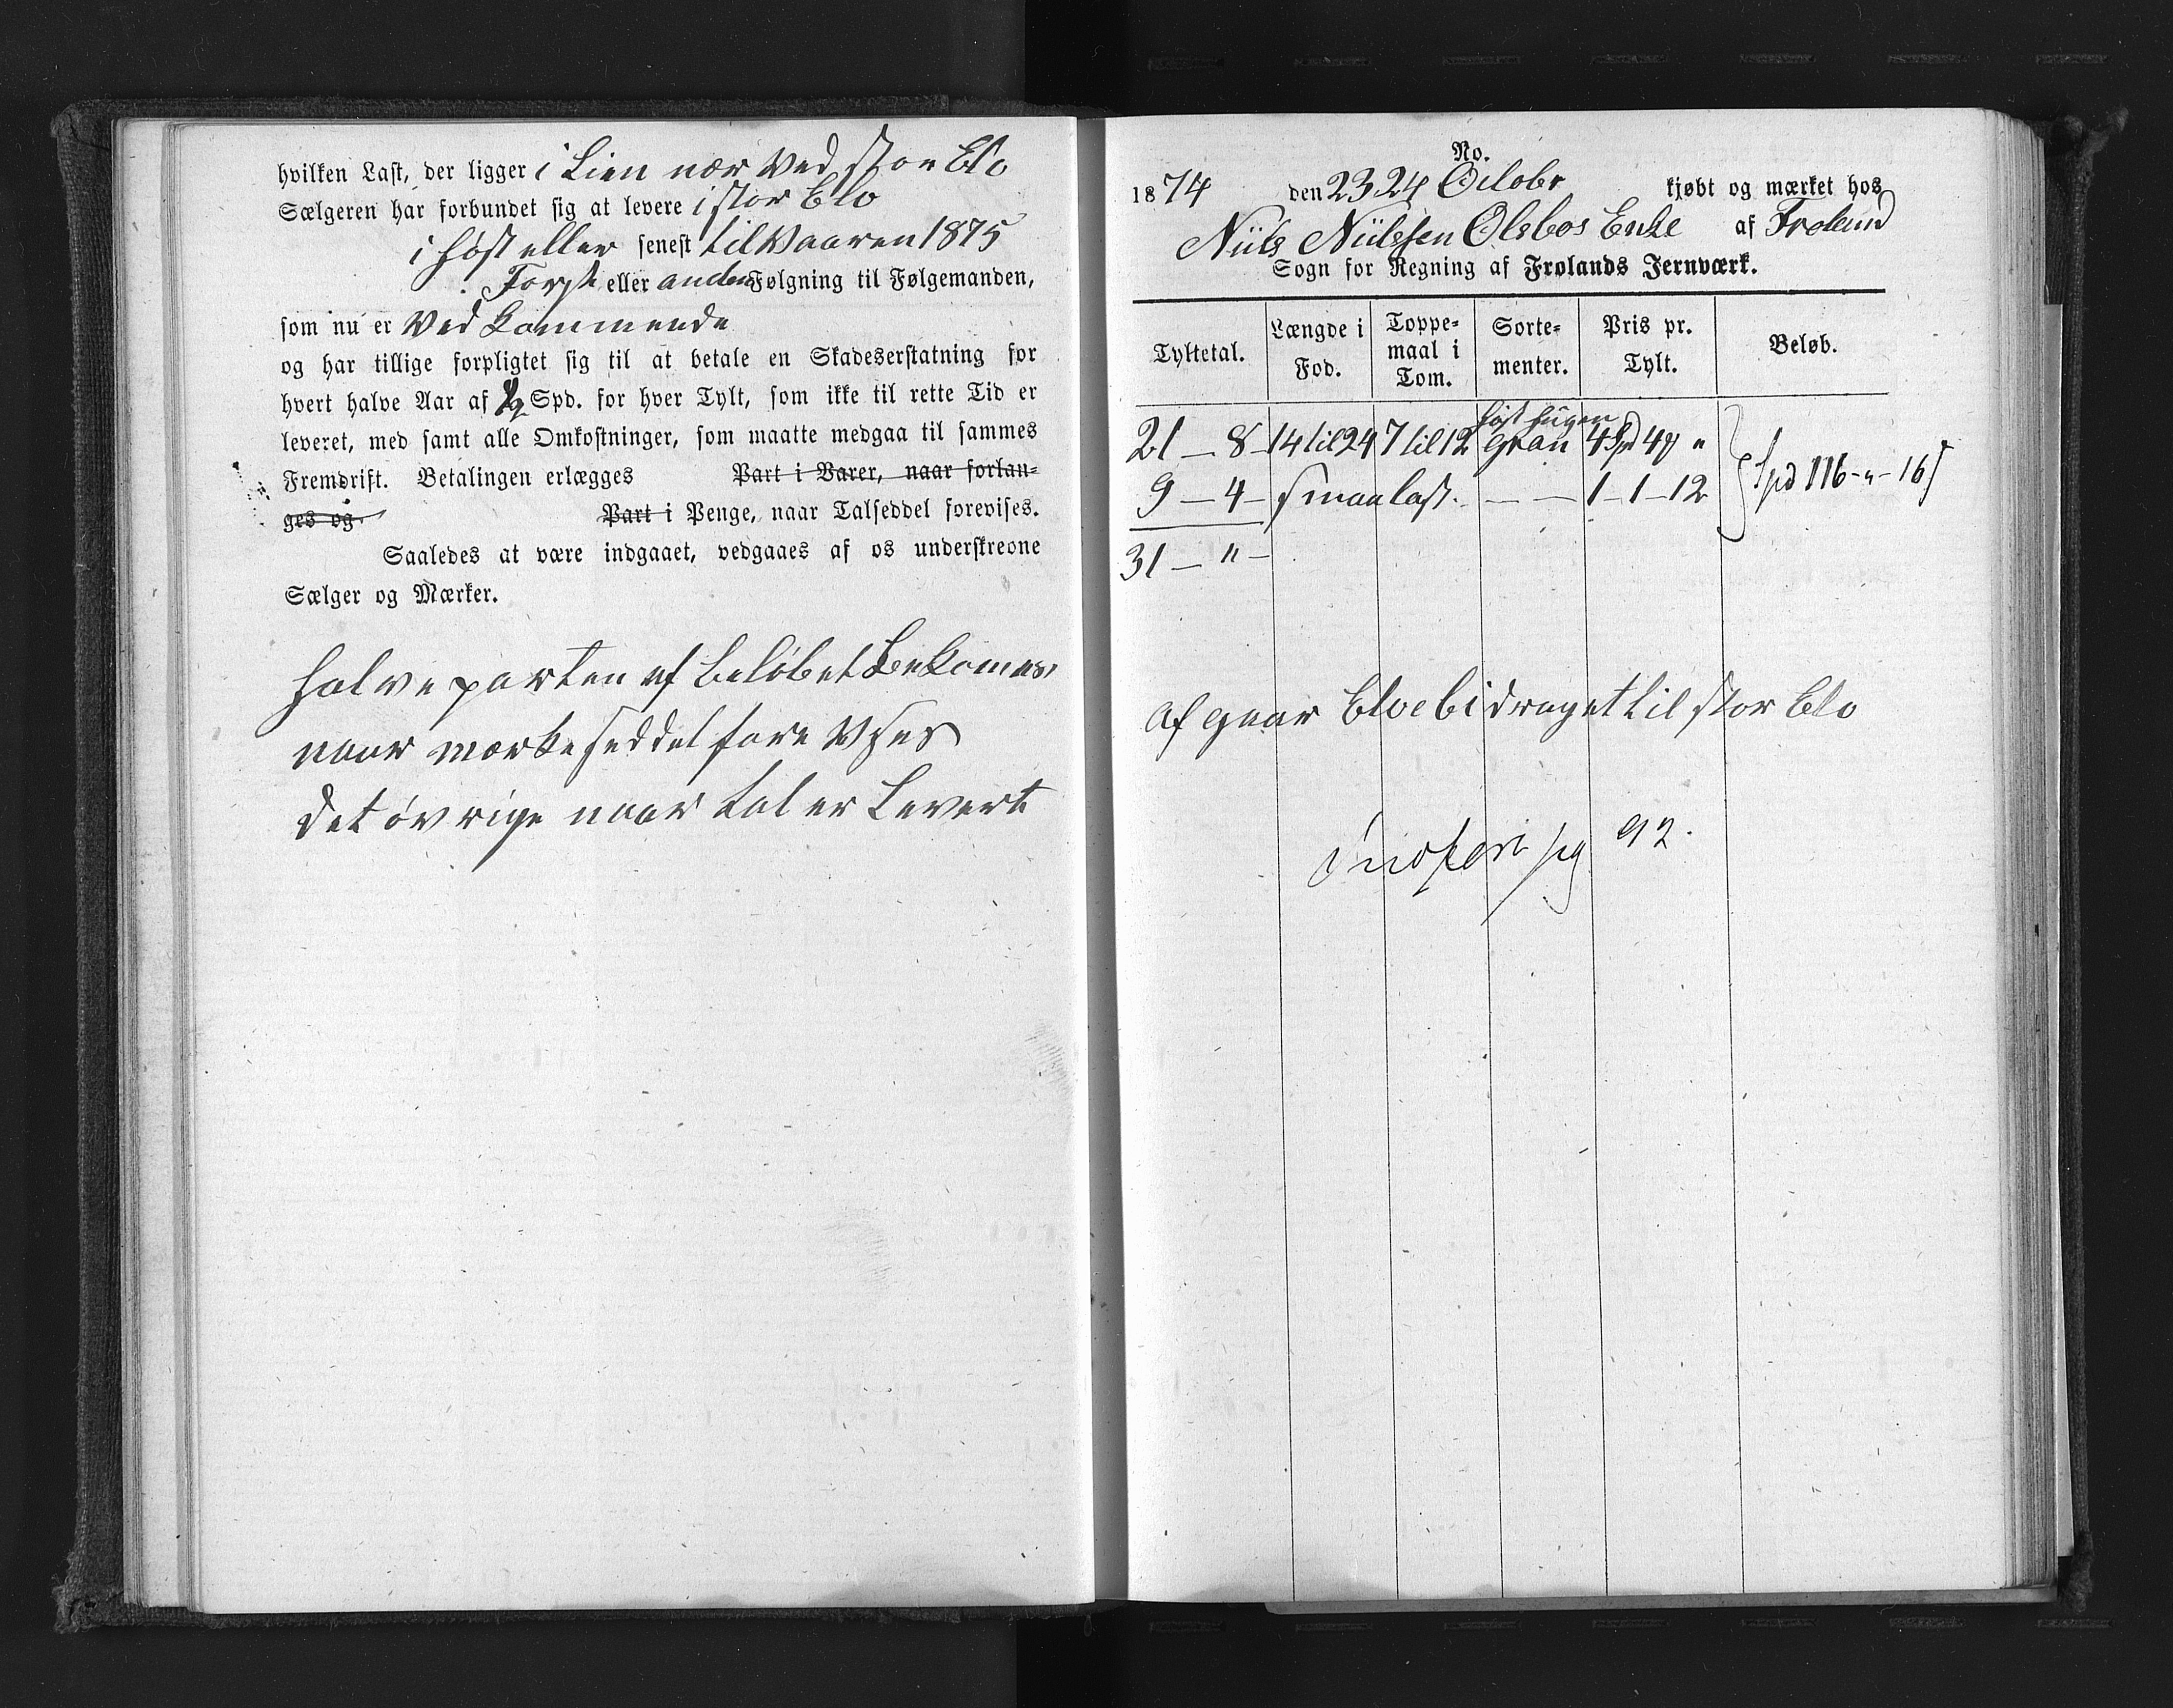 hvilken Last, der ligger i Lien nær ved stor Elv
Sælgeren har forbundet sig at levere i stor Elv
i høst eller senest til Vaaren 1875
Første eller anden Følgning til Følgemanden,
som nu er Ved Kommende
og har tillige forpligtet sig til at betale en Skadeserstatning for
hvert halve Aar af ½ Spd. for hver Tylt, som ikke til rette Tid er
leveret, med samt alle Omkostninger, som maatte medgaa til sammes
Fremdrift. Betalingen erlægges Part i Varer, naar forlan-
ges og Part i Penge, naar Talseddel forevises.
Saaledes at være indgaaet, vedgaaes af os underskrevne
Sælger og Mærker.
halve parten af beløbet beKomes
naar mærke seddel fore Vises
det øvrige naar tal er Levert
No.
1874 den 23 24 Octobr kjøbt og mærket hos
Niils Niilssen Olsbos Enke af Froland
Sogn for Regning af Frolands Jernværk.
Tyltetal. Længde i Fod. Toppe-maal i Tom. Sorte-menter. Pris pr. Tylt. Beløb.
høst hugen
21 — 8 — 14 til 24 7 til 12 gran 4 Spd 4 "
9 — 4 — smaa last. — — 1 — 1 — 12 Spd 116 - " - 16 s
31 — " —
Af gaar Elve bidraget til stor Elv
pag 92.